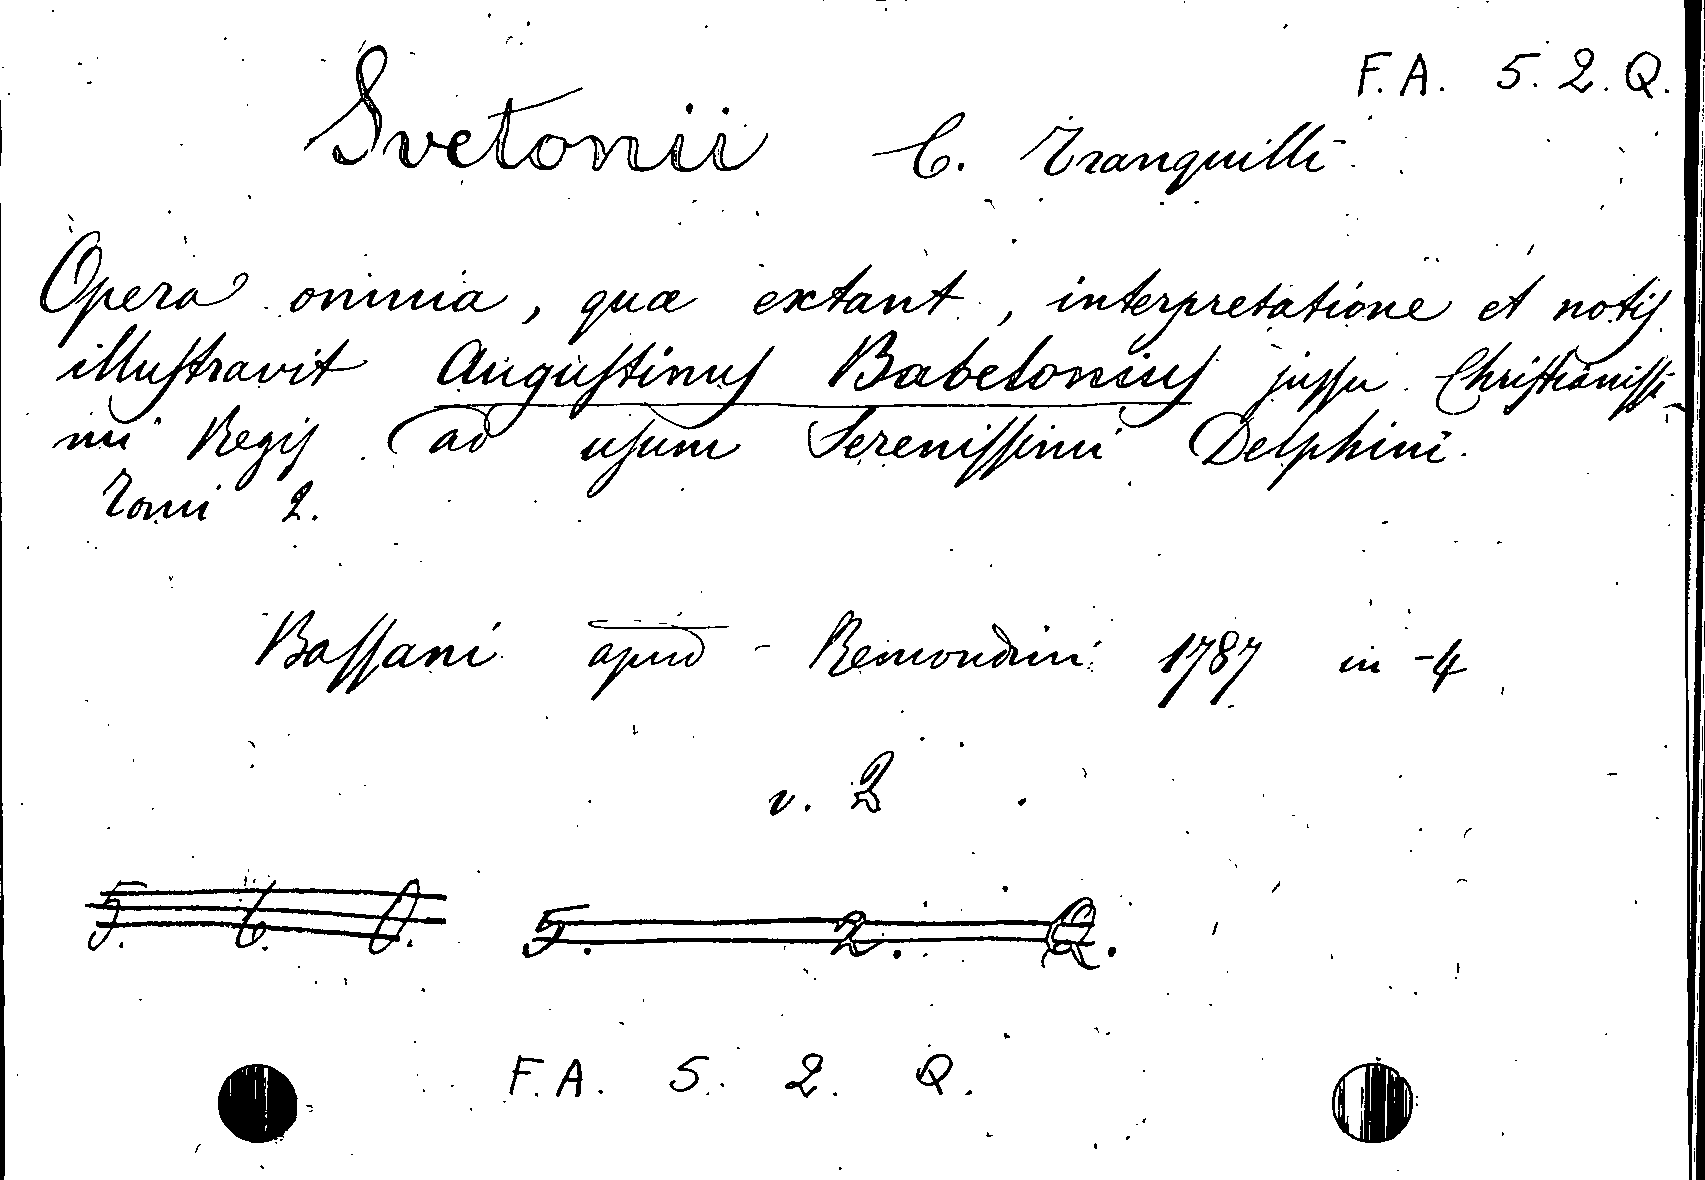 F. A. 5. 2. Q.
Svetonii C. Tranquilli
Opera omnia, quæ extant, interpretatione et notis
illustravit Augustinus Babelonius jussu Christianissi-
mi Regis ad usum Serenissimi Delphini.
Tomi 2.
Bassani apud - Remondini 1787 in -4
v. 2
5. 6. O. 5. 2. Q.
F. A. 5. 2. Q.